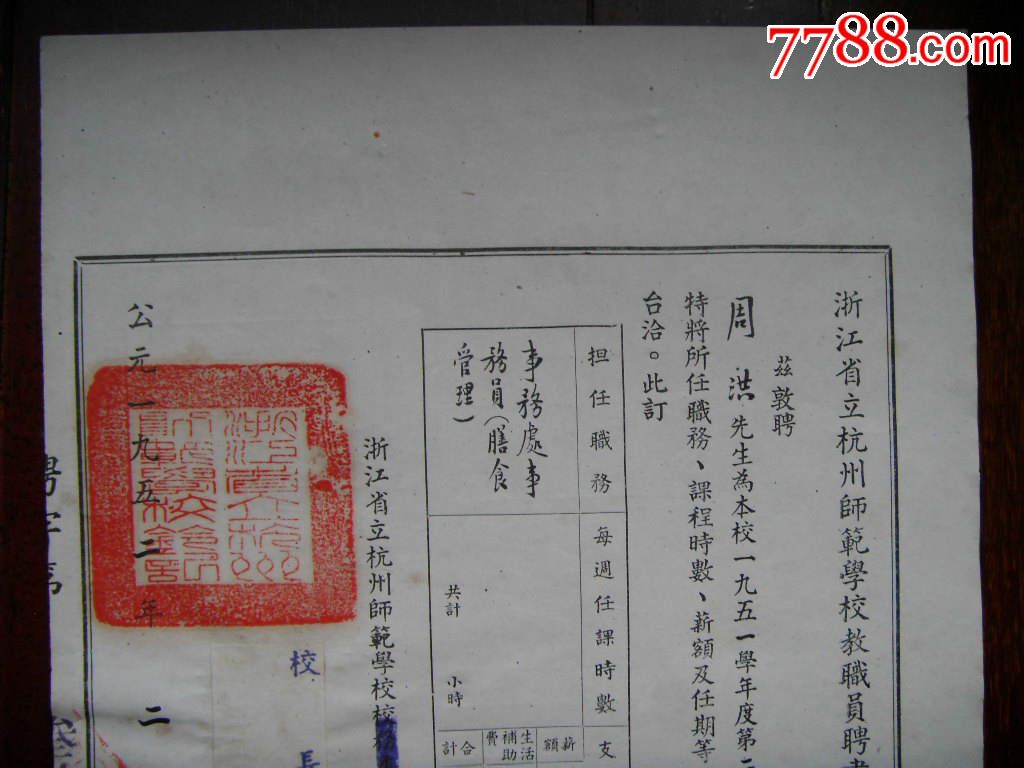 7788.com
浙江省立杭州師範學校教職員聘書
茲敦聘
周洪先生為本校一九五一學年度第二
特將所任職務、課程時數、薪額及任期等
台洽。此訂
担任職務
每週任課時數
支
事務處事
務員(膳食
管理)
共計 小時
薪額
生活補助費
合計
浙江省立杭州師範學校校
校長
公元一九五二年二
聘字第